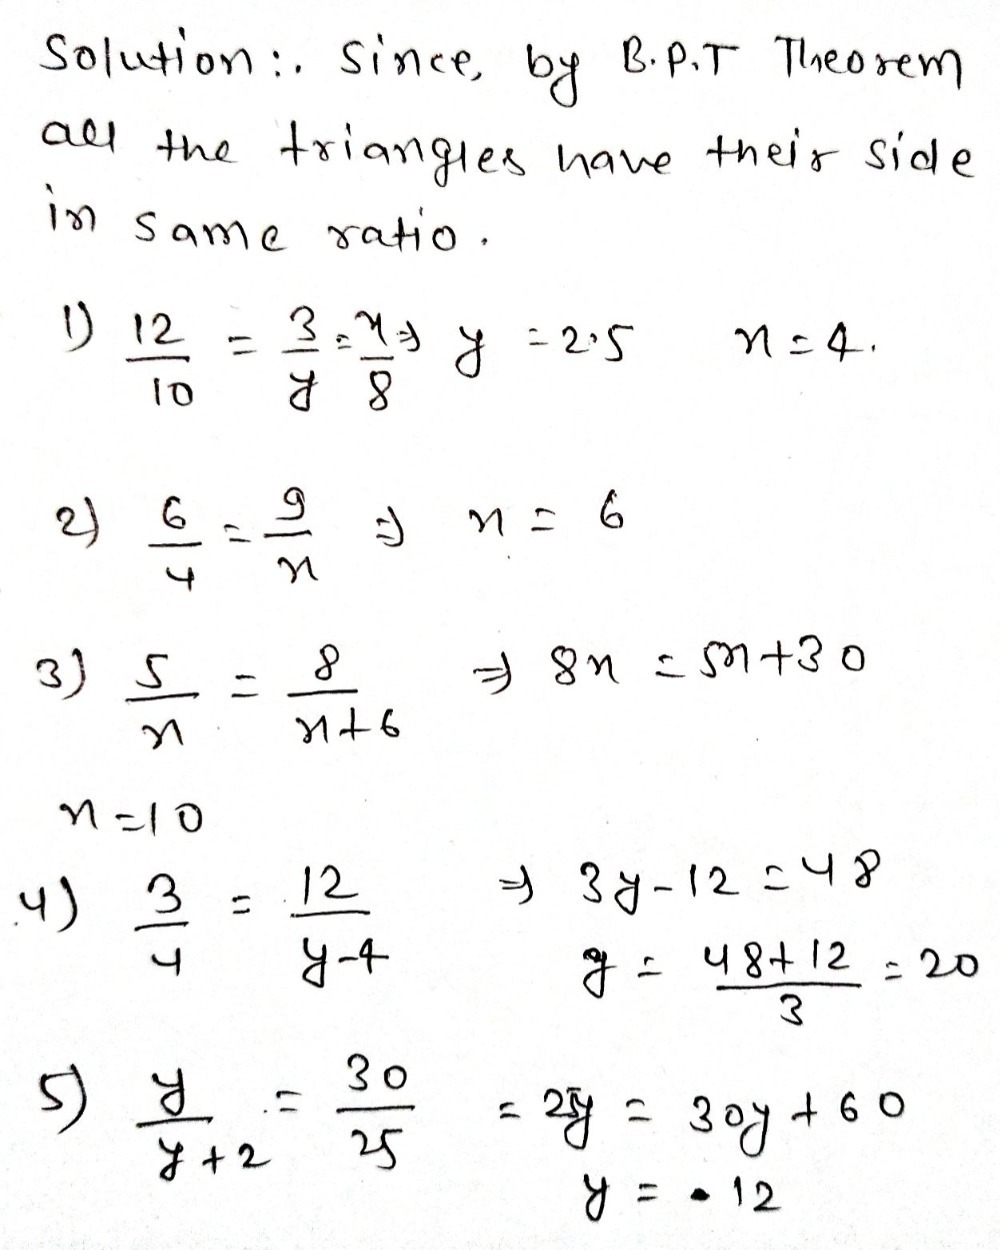 Solution:. Since, by B.P.T Theorem
all the triangles have their side
in same ratio.
1) 12/10 = 3/y = x/8 ⇒ y = 2.5 x = 4.
2) 6/4 = 9/x ⇒ x = 6
3) 5/x = 8/x+6 ⇒ 8x = 5x+30
x = 10
4) 3/4 = 12/y-4 ⇒ 3y-12 = 48
y = 48+12/3 = 20
5) y/y+2 = 30/25 = 25y = 30y + 60
y = 12